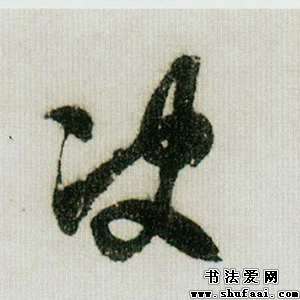 决
书法爱网
www.shufaai.com